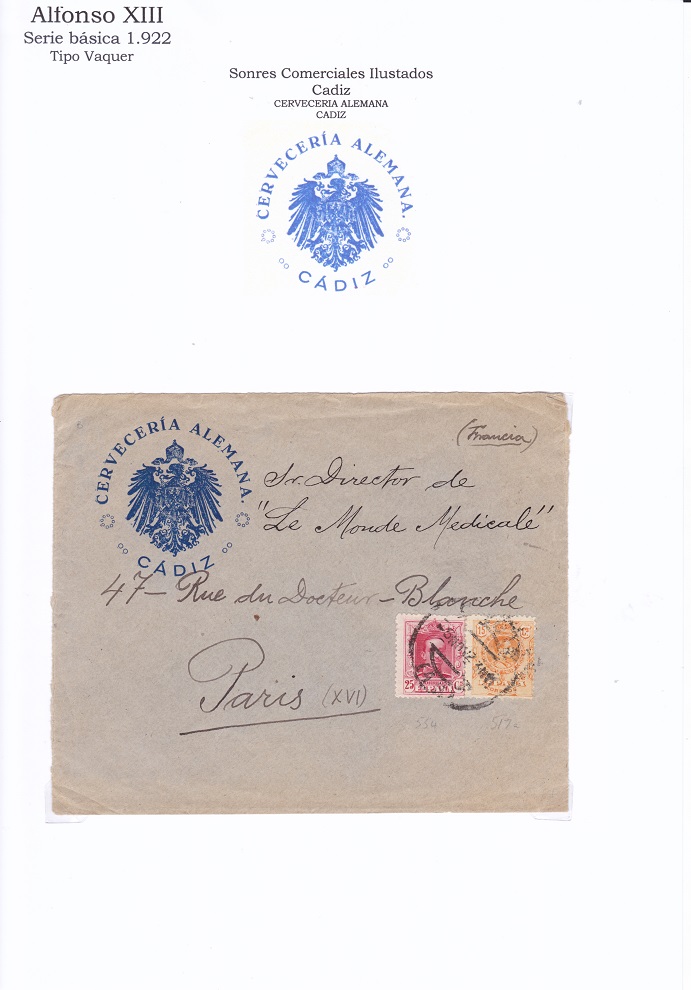 Alfonso XIII
Serie básica 1.922
Tipo Vaquer
Sonres Comerciales Ilustados
Cadiz
CERVECERIA ALEMANA
CADIZ
CERVECERÍA ALEMANA.
CÁDIZ
CERVECERÍA ALEMANA.
CÁDIZ
(Francia)
Sr. Director de
"Le Monde Medicalé"
47- Rue du Docteur-Blanche
Paris (XVI)
25
15
554
517c